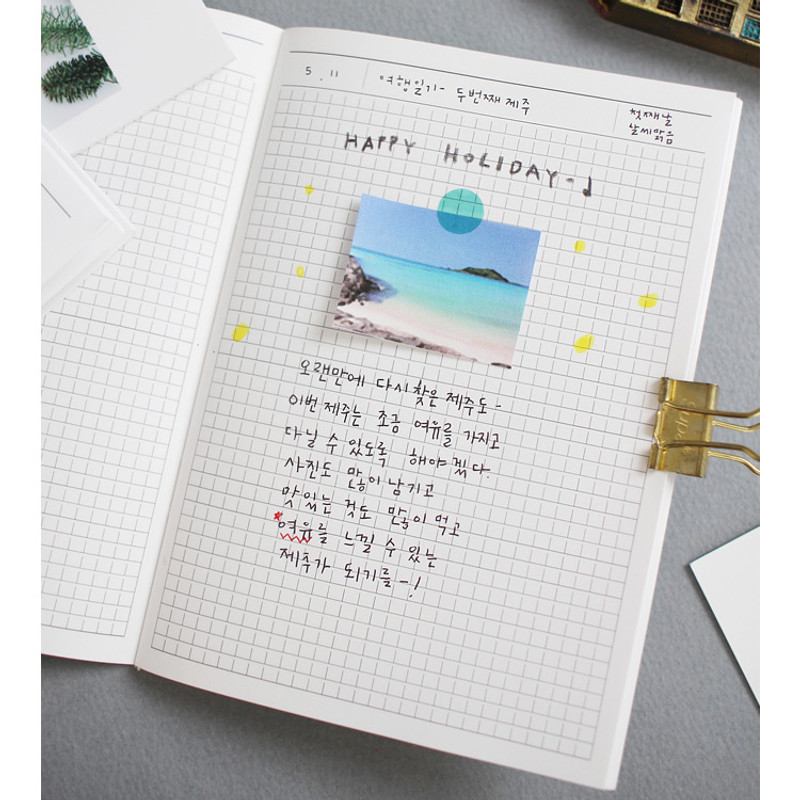 5 . 11
여행일기- 두번째 제주
첫째날
날씨맑음
HAPPY HOLIDAY-♩
오랜만에 다시 찾은 제주도-
이번 제주는 조금 여유를 가지고
다닐 수 있도록 해야겠다.
사진도 많이 남기고
맛있는 것도 많이 먹고
*여유를 느낄 수 있는
제주가 되기를-!